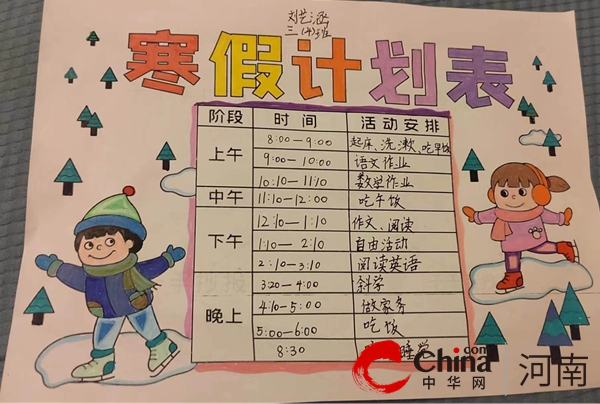 刘艺涵
三(4)班
寒假计划表
阶段 时间 活动安排
上午 8:00—9:00 起床、洗漱、吃早饭
9:00—10:00 语文作业
10:10—11:10 数学作业
中午 11:10—12:00 吃午饭
下午 12:10—1:10 作文、阅读
1:10—2:10 自由活动
2:10—3:10 阅读英语
3:20—4:00 科学
晚上 4:10—5:00 做家务
5:00—6:00 吃饭
8:30 睡觉
China.com
中华网 河南